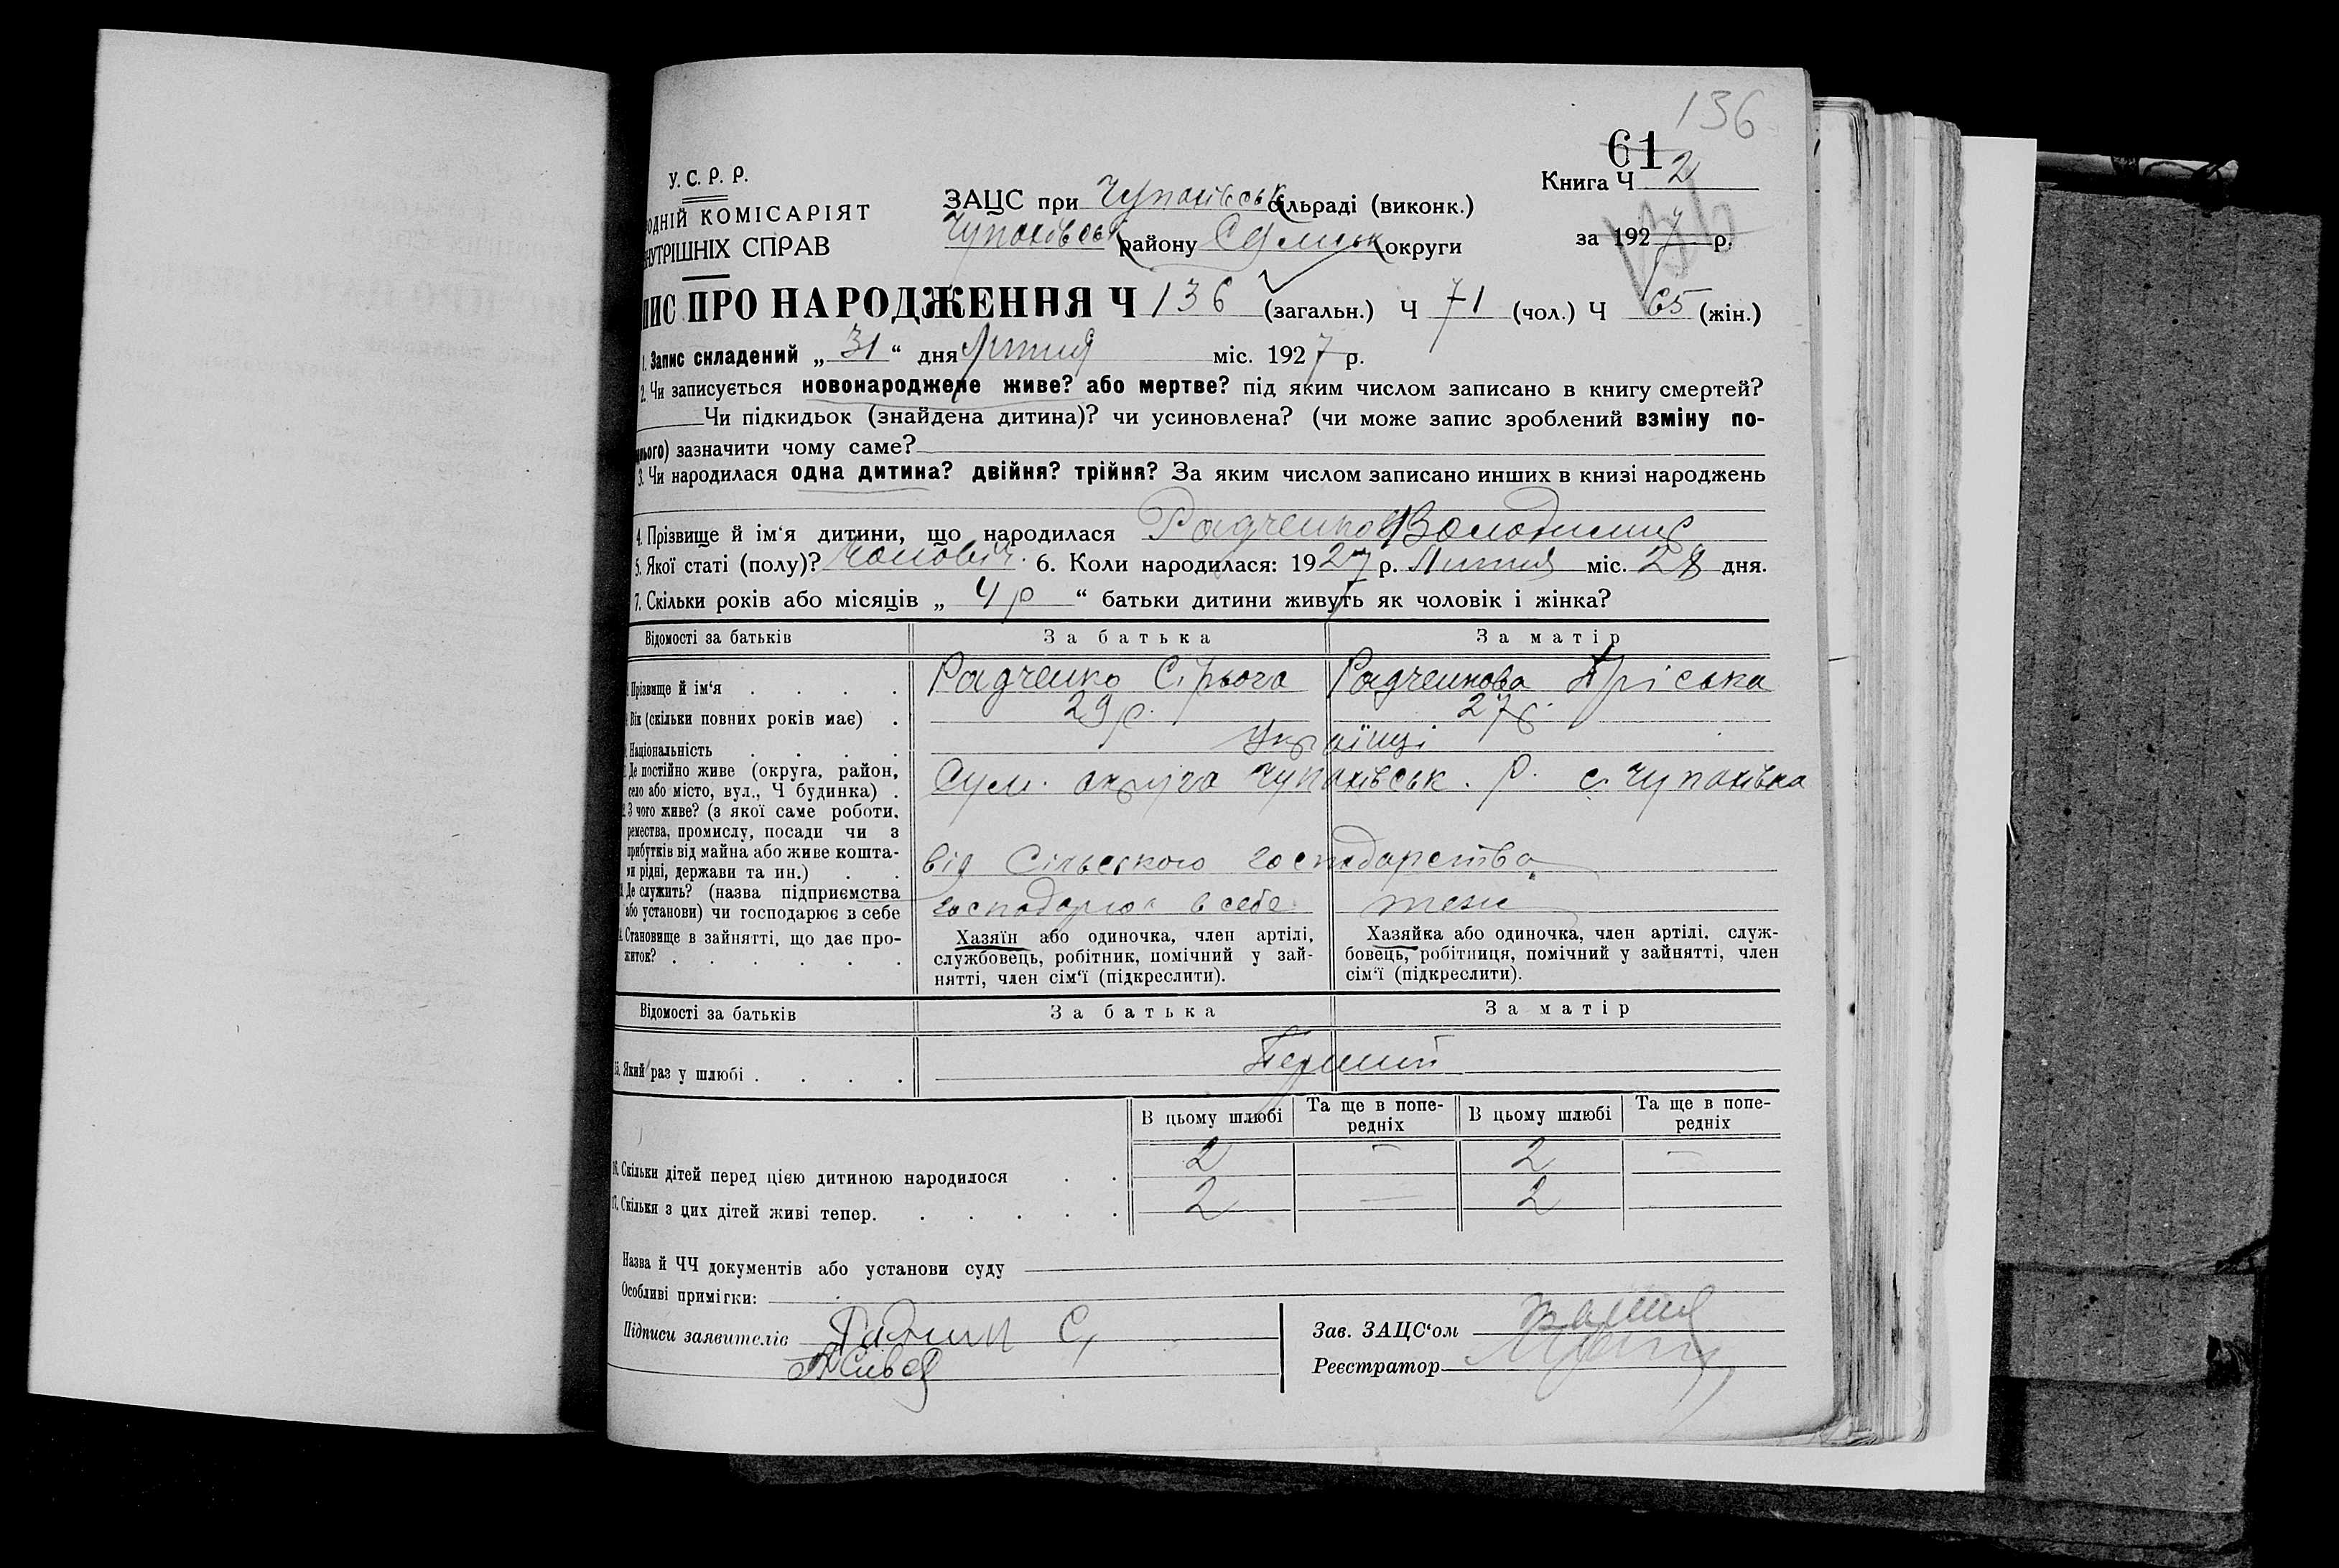 136
61
У. С. Р. Р.
Книга Ч 2
ОДНІЙ КОМІСАРІЯТ
ЗАЦС при Чупахівськ сільраді (виконк.)
НУТРІШНІХ СПРАВ
Чупахівськ району Сумськ округи
за 1927 р.
136
ИС ПРО НАРОДЖЕННЯ Ч 136 (загальн.) Ч 71 (чол.) Ч 65 (жін.)
1. Запис складений „ 31 “ дня Липня міс. 1927 р.
2. Чи записується новонароджене живе? або мертве? під яким числом записано в книгу смертей?
Чи підкидьок (знайдена дитина)? чи усиновлена? (чи може запис зроблений взміну по-
нього) зазначити чому саме?
3. Чи народилася одна дитина? двійня? трійня? За яким числом записано инших в книзі народжень
4. Прізвище й ім‘я дитини, що народилася Радченко Володимир
5. Якої статі (полу)? Чоловіч. 6. Коли народилася: 1927 р. Липня міс. 28 дня.
7. Скільки років або місяців „ 4 р “ батьки дитини живуть як чоловік і жінка?
Відомості за батьків За батька За матір
Прізвище й ім‘я . . . . Радченко Сірьога Радченкова Пріська
Вік (скільки повних років має) . 29 р. 27 р.
Національність . . . . Українці
Де постійно живе (округа, район,
село або місто, вул., Ч будинка) . Сум. округа Чупахівськ. р. с. Чупахівка
З чого живе? (з якої саме роботи,
ремества, промислу, посади чи з
прибутків від майна або живе кошта-
ми рідні, держави та ин.) . . від Сільського господарства
Де служить? (назва підприємства
або установи) чи господарює в себе господарює в себе теж
Становище в зайнятті, що дає про-
житок? . . . . . .
Хазяїн або одиночка, член артілі,
службовець, робітник, помічний у зай-
нятті, член сім‘ї (підкреслити).
Хазяйка або одиночка, член артілі, служ-
бовець, робітниця, помічний у зайнятті, член
сім‘ї (підкреслити).
Відомості за батьків За батька За матір
15. Який раз у шлюбі . . . . Перший
В цьому шлюбі Та ще в попе-редніх В цьому шлюбі Та ще в попе-редніх
16. Скільки дітей перед цією дитиною народилося . . 2 — 2 —
17. Скільки з цих дітей живі тепер. . . . . . 2 — 2
Назва й ЧЧ документів або установи суду
Особливі примігки:
Підписи заявителів С,
Зав. ЗАЦС‘ом
Реєстратор